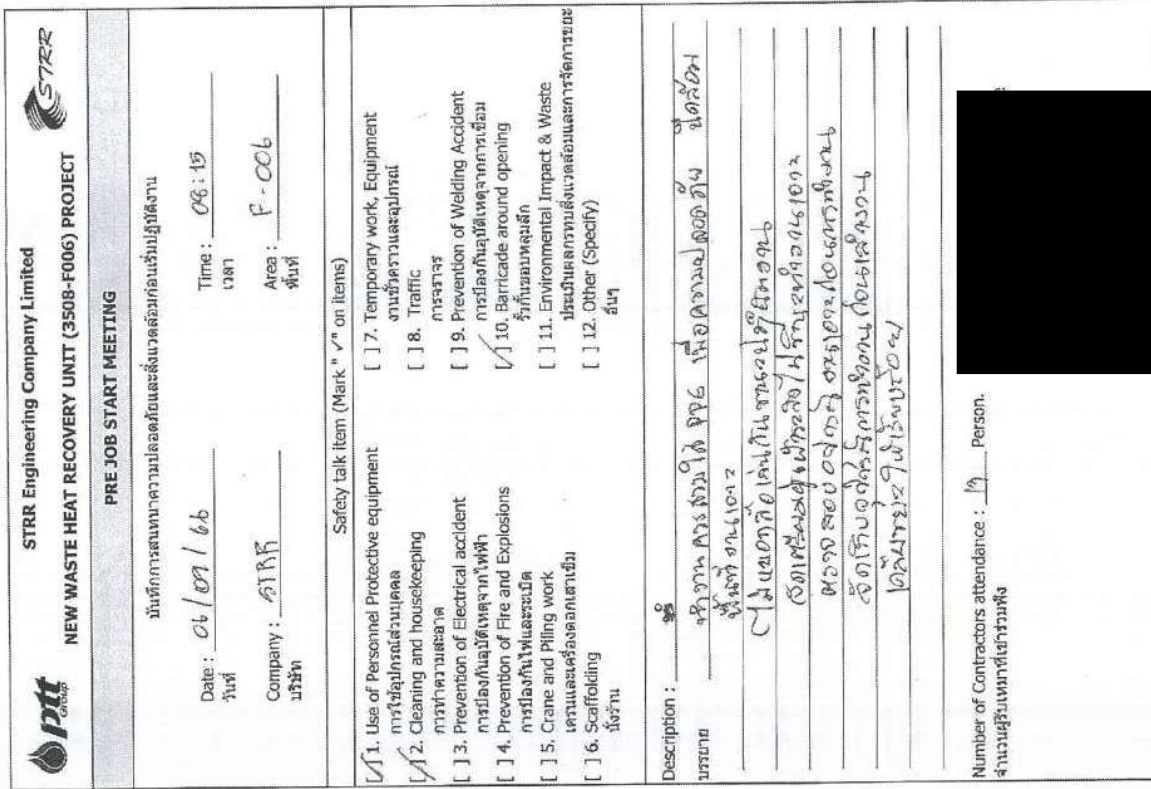 ptt
Group
STRR Engineering Company Limited
NEW WASTE HEAT RECOVERY UNIT (3508-F006) PROJECT
STRR
PRE JOB START MEETING
บันทึกการสนทนาความปลอดภัยและสิ่งแวดล้อมก่อนเริ่มปฏิบัติงาน
Date : 06/07/66
วันที่
Time : 08:15
เวลา
Company : STRR
บริษัท
Area : F-006
พื้นที่
Safety talk item (Mark " ✓" on items)
[✓] 1. Use of Personnel Protective equipment
การใช้อุปกรณ์ส่วนบุคคล
[✓] 2. Cleaning and housekeeping
การทำความสะอาด
[ ] 3. Prevention of Electrical accident
การป้องกันอุบัติเหตุจากไฟฟ้า
[ ] 4. Prevention of Fire and Explosions
การป้องกันไฟและระเบิด
[ ] 5. Crane and Piling work
เครนและเครื่องตอกเสาเข็ม
[ ] 6. Scaffolding
นั่งร้าน
[ ] 7. Temporary work, Equipment
งานชั่วคราวและอุปกรณ์
[ ] 8. Traffic
การจราจร
[ ] 9. Prevention of Welding Accident
การป้องกันอุบัติเหตุจากการเชื่อม
[✓] 10. Barricade around opening
รั้วกั้นขอบหลุมลึก
[ ] 11. Environmental Impact & Waste
ประเมินผลกระทบสิ่งแวดล้อมและการจัดการขยะ
[ ] 12. Other (Specify)
อื่นๆ
Description :
บรรยาย
ทำงานควรสวมใส่ PPE เพื่อความปลอดภัย ปิดล้อม
พื้นที่
ไม่หยอกล้อเล่นกันขณะปฏิบัติงาน
ตรวจสอบอุปกรณ์ ก่อนการทำงาน
จัดเก็บอุปกรณ์การทำงาน
เคลียร์ขยะให้เรียบร้อย
Number of Contractors attendance : Person.
จำนวนผู้รับเหมาที่เข้าร่วมฟัง